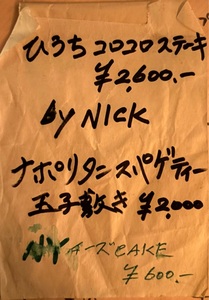 ひろち コロコロステーキ
¥2,600.-
by NICK
ナポリタンスパゲティー
玉子敷き ¥2,000
NYチーズCAKE
¥600.-